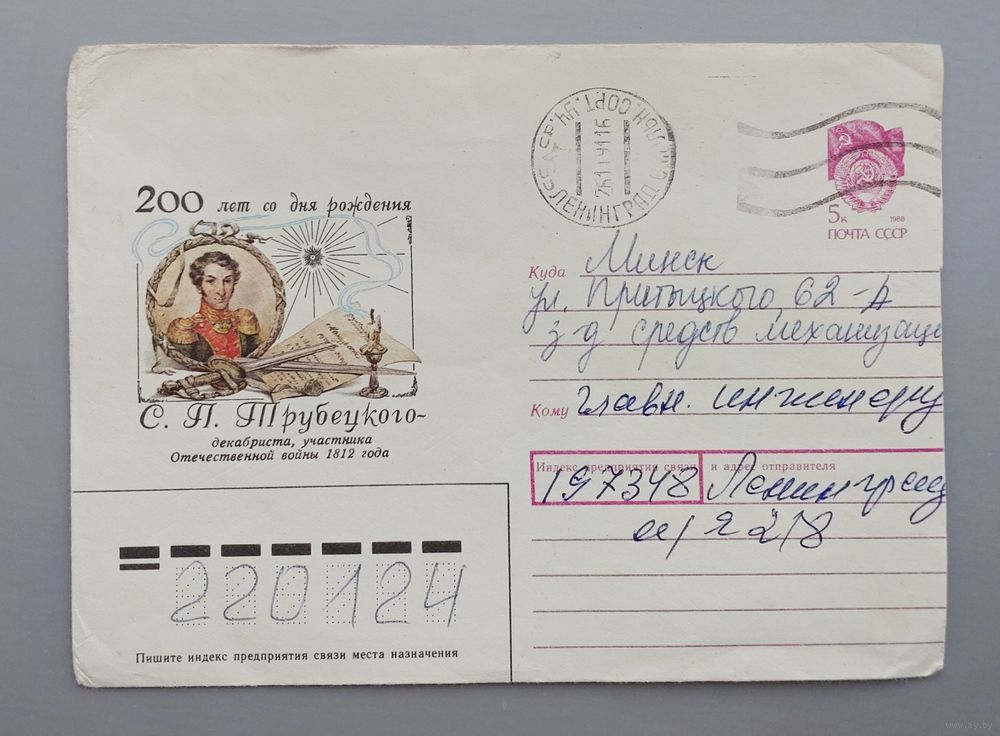 200 лет со дня рождения
С. П. Трубецкого-
декабриста, участника
Отечественной войны 1812 года
ЛЕНИНГРАД
СОРТ. УЧ.
26 11 91 16
5к
1988
ПОЧТА СССР
Куда Минск
ул. Притыцкого, 62-А
з-д средств механизаци
Кому Главн. инженеру
Индекс предприятия связи и адрес отправителя
197348 Ленинград
а/я 218
220124
Пишите индекс предприятия связи места назначения
www.ay.by